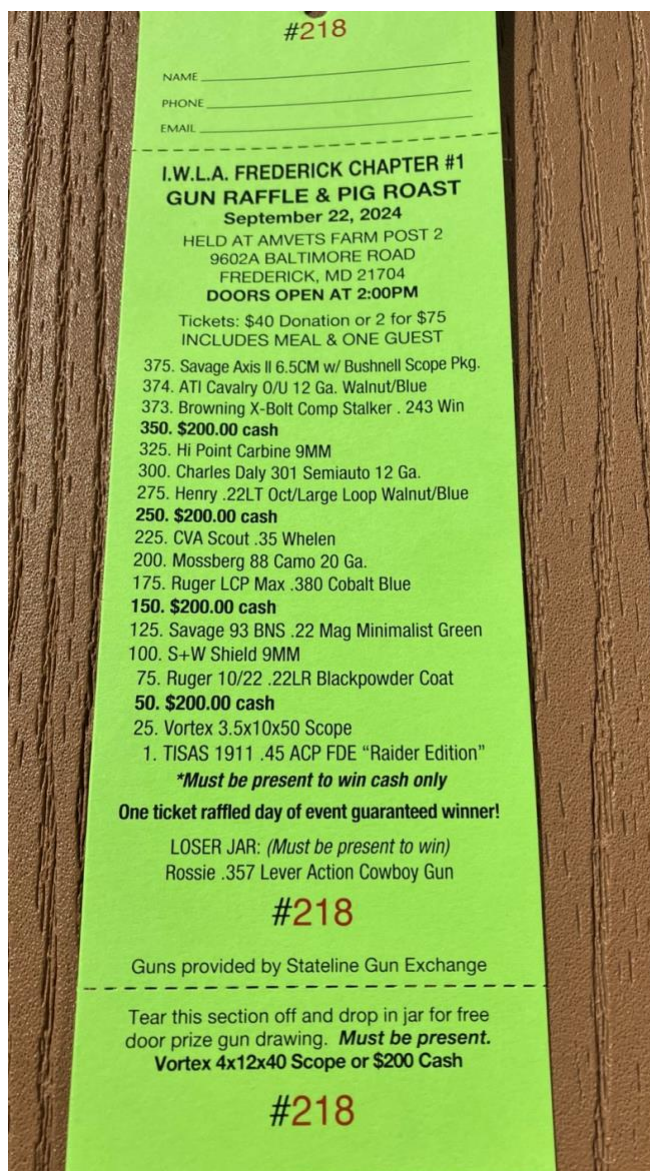 #218
NAME
PHONE
EMAIL
I.W.L.A. FREDERICK CHAPTER #1
GUN RAFFLE & PIG ROAST
September 22, 2024
HELD AT AMVETS FARM POST 2
9602A BALTIMORE ROAD
FREDERICK, MD 21704
DOORS OPEN AT 2:00PM
Tickets: $40 Donation or 2 for $75
INCLUDES MEAL & ONE GUEST
375. Savage Axis II 6.5CM w/ Bushnell Scope Pkg.
374. ATI Cavalry O/U 12 Ga. Walnut/Blue
373. Browning X-Bolt Comp Stalker . 243 Win
350. $200.00 cash
325. Hi Point Carbine 9MM
300. Charles Daly 301 Semiauto 12 Ga.
275. Henry .22LT Oct/Large Loop Walnut/Blue
250. $200.00 cash
225. CVA Scout .35 Whelen
200. Mossberg 88 Camo 20 Ga.
175. Ruger LCP Max .380 Cobalt Blue
150. $200.00 cash
125. Savage 93 BNS .22 Mag Minimalist Green
100. S+W Shield 9MM
75. Ruger 10/22 .22LR Blackpowder Coat
50. $200.00 cash
25. Vortex 3.5x10x50 Scope
1. TISAS 1911 .45 ACP FDE “Raider Edition”
*Must be present to win cash only
One ticket raffled day of event guaranteed winner!
LOSER JAR: (Must be present to win)
Rossie .357 Lever Action Cowboy Gun
#218
Guns provided by Stateline Gun Exchange
Tear this section off and drop in jar for free
door prize gun drawing. Must be present.
Vortex 4x12x40 Scope or $200 Cash
#218